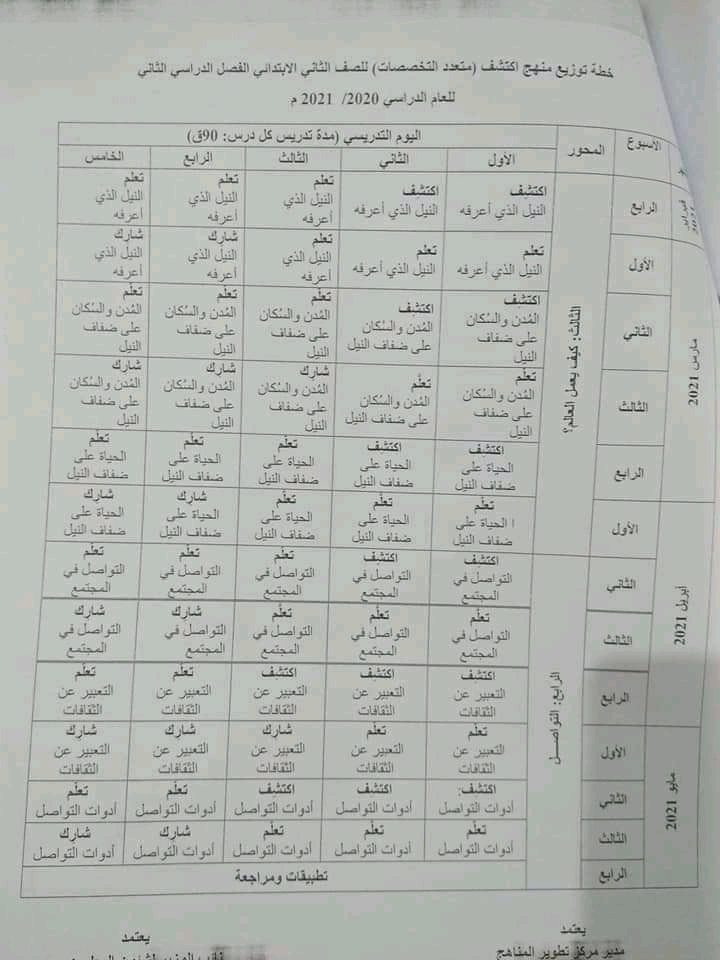 خطة توزيع منهج اكتشف (متعدد التخصصات) للصف الثاني الابتدائي الفصل الدراسي الثاني
للعام الدراسي 2020/ 2021 م
الأسبوع المحور اليوم التدريسي (مدة تدريس كل درس: 90ق)
الأول الثاني الثالث الرابع الخامس
الرابع
الثالث: كيف يعمل العالم؟
اكتشف اكتشف تعلم تعلم تعلم
النيل الذي أعرفه النيل الذي أعرفه النيل الذي النيل الذي النيل الذي
أعرفه أعرفه أعرفه
مارس 2021
الأول
تعلم تعلم تعلم شارك شارك
النيل الذي أعرفه النيل الذي أعرفه النيل الذي النيل الذي النيل الذي
أعرفه أعرفه أعرفه
الثاني
اكتشف اكتشف تعلم تعلم تعلم
المُدن والسُكان المُدن والسُكان المُدن والسُكان المُدن والسُكان المُدن والسُكان
على ضفاف على ضفاف النيل على ضفاف على ضفاف على ضفاف
النيل النيل النيل النيل
الثالث
تعلم تعلم شارك شارك شارك
المُدن والسُكان المُدن والسُكان المُدن والسُكان المُدن والسُكان المُدن والسُكان
على ضفاف على ضفاف النيل على ضفاف على ضفاف على ضفاف
النيل النيل النيل النيل
الرابع
اكتشف اكتشف تعلم تعلم تعلم
الحياة على الحياة على الحياة على الحياة على الحياة على
ضفاف النيل ضفاف النيل ضفاف النيل ضفاف النيل ضفاف النيل
أبريل 2021
الأول
تعلم تعلم تعلم شارك شارك
ا الحياة على الحياة على الحياة على الحياة على الحياة على
ضفاف النيل ضفاف النيل ضفاف النيل ضفاف النيل ضفاف النيل
الثاني
الرابع: التواصل
اكتشف اكتشف تعلم تعلم تعلم
التواصل في التواصل في التواصل في التواصل في التواصل في
المجتمع المجتمع المجتمع المجتمع المجتمع
الثالث
تعلم تعلم تعلم شارك شارك
التواصل في التواصل في التواصل في التواصل في التواصل في
المجتمع المجتمع المجتمع المجتمع المجتمع
الرابع
اكتشف اكتشف اكتشف تعلم تعلم
التعبير عن التعبير عن التعبير عن التعبير عن التعبير عن
الثقافات الثقافات الثقافات الثقافات الثقافات
مايو 2021
الأول
تعلم تعلم شارك شارك شارك
التعبير عن التعبير عن التعبير عن التعبير عن التعبير عن
الثقافات الثقافات الثقافات الثقافات الثقافات
الثاني
اكتشف: اكتشف اكتشف تعلم تعلم
أدوات التواصل أدوات التواصل أدوات التواصل أدوات التواصل أدوات التواصل
الثالث
تعلم تعلم تعلم شارك شارك
أدوات التواصل أدوات التواصل أدوات التواصل أدوات التواصل أدوات التواصل
الرابع
تطبيقات ومراجعة
يعتمد يعتمد
مدير مركز تطوير المناهج نائب الوزير